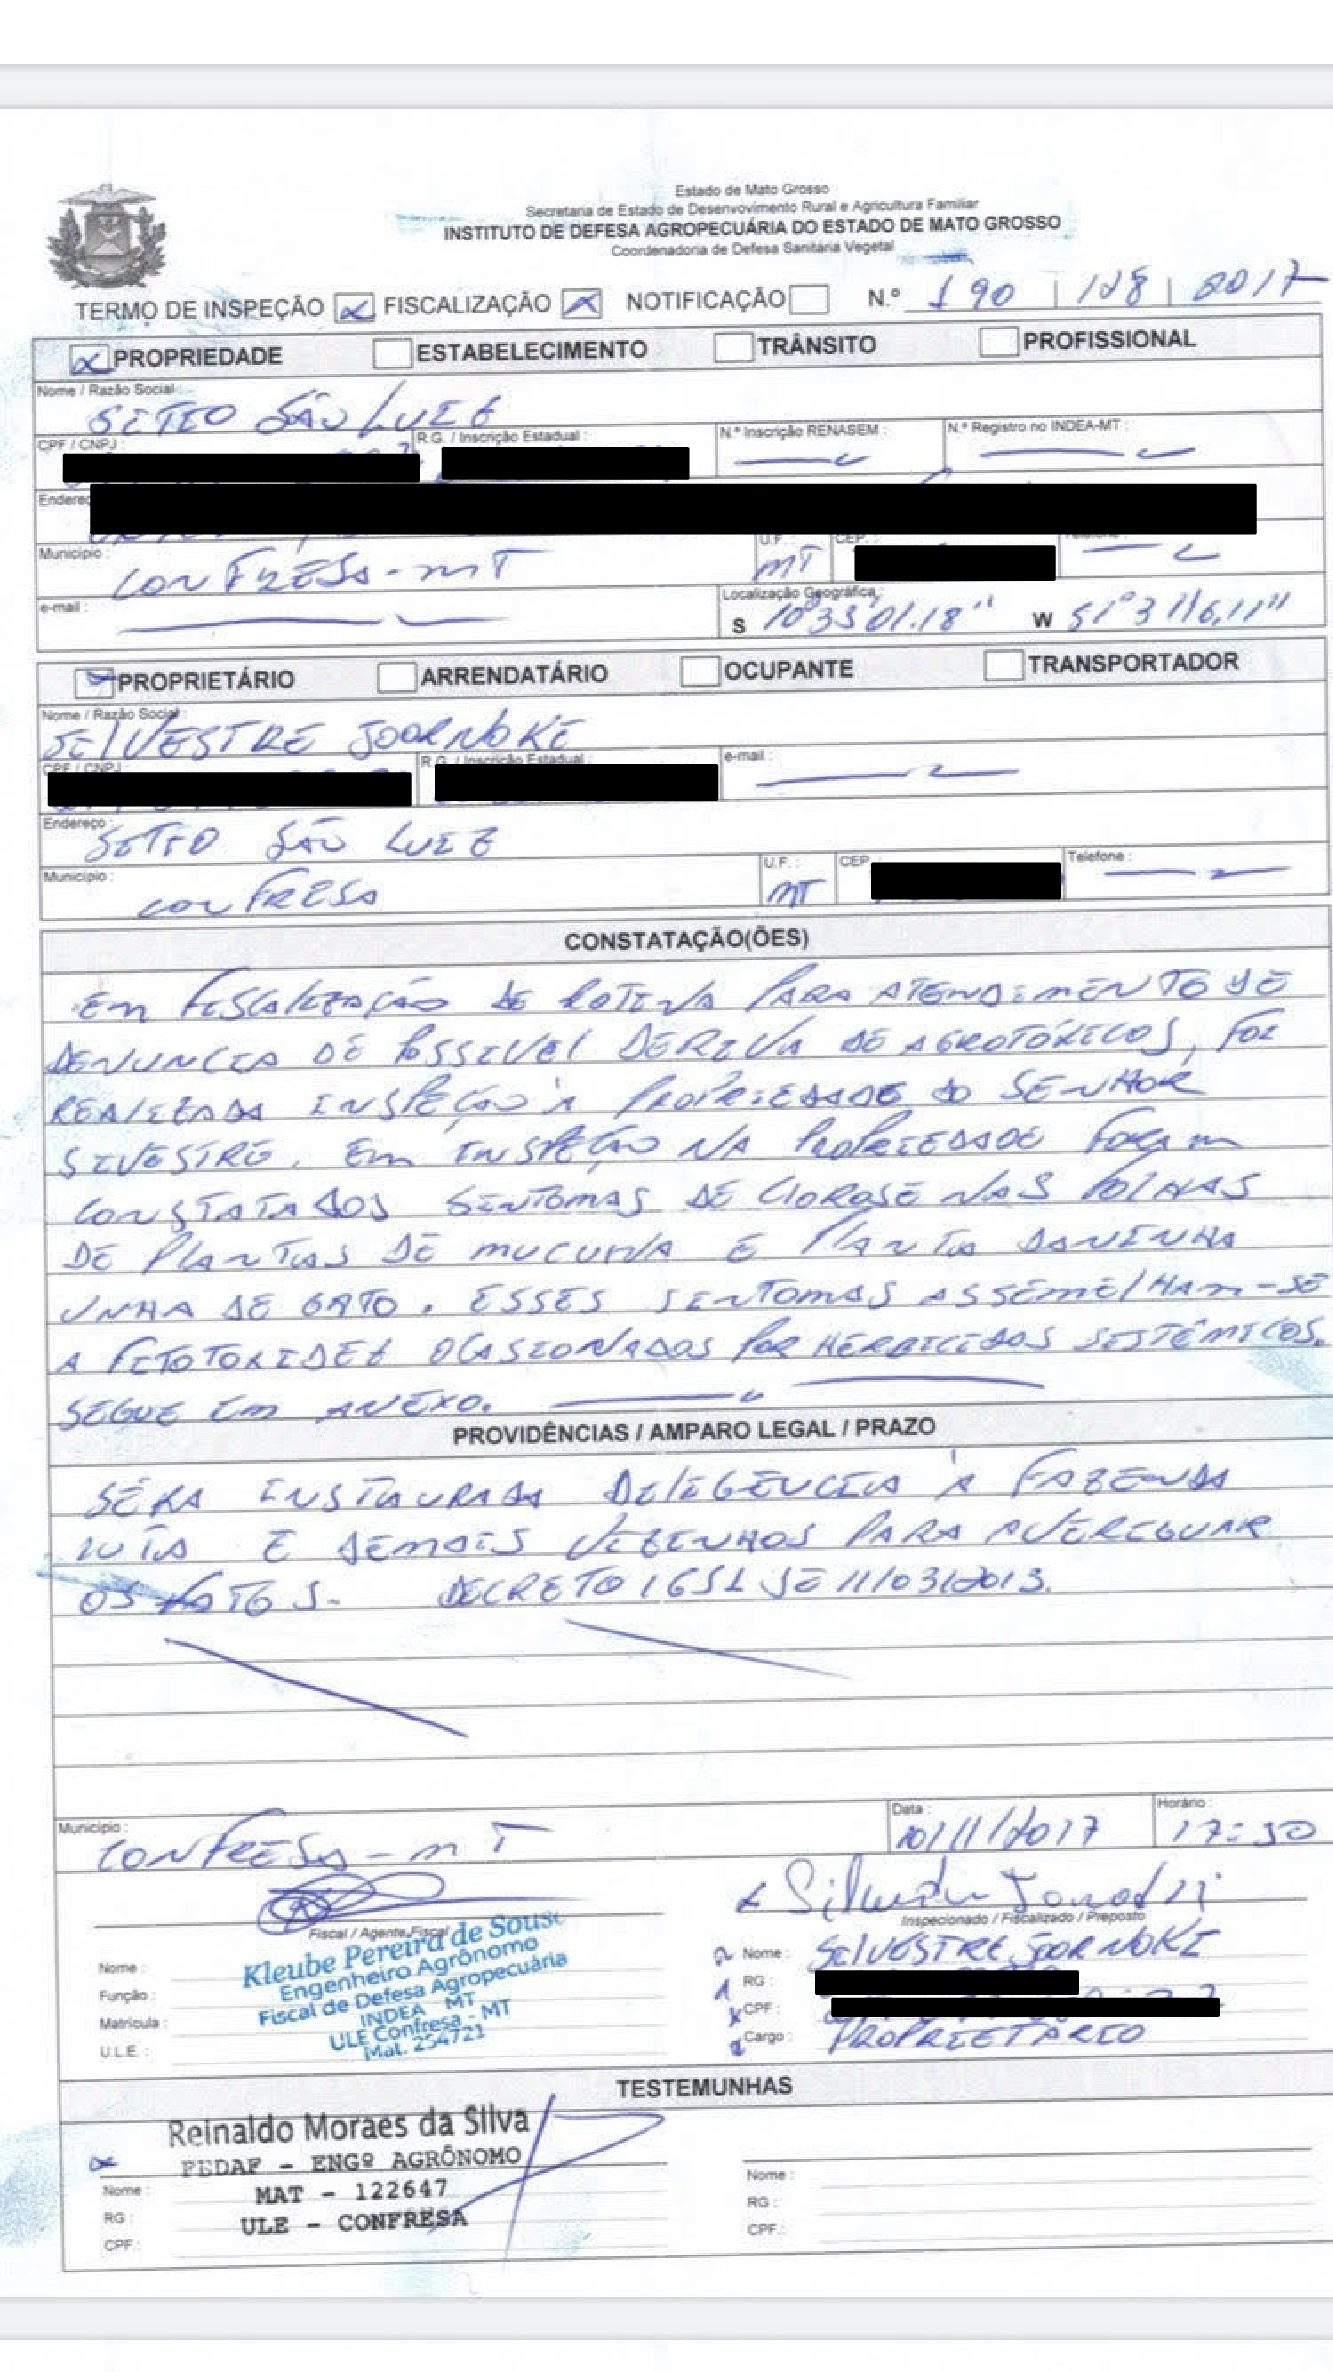 Estado de Mato Grosso
Secretaria de Estado de Desenvolvimento Rural e Agricultura Familiar
INSTITUTO DE DEFESA AGROPECUÁRIA DO ESTADO DE MATO GROSSO
Coordenadoria de Defesa Sanitária Vegetal
TERMO DE INSPEÇÃO FISCALIZAÇÃO NOTIFICAÇÃO N.º 190 | 128 | 2017
PROPRIEDADE ESTABELECIMENTO TRÂNSITO PROFISSIONAL
Nome / Razão Social
SITIO SÃO LUIZ
CPF / CNPJ : R.G. / Inscrição Estadual : N.º Inscrição RENASEM : N.º Registro no INDEA-MT :
Município : CONFRESA-MT U.F. : MT CEP. :
e-mail : Localização Geográfica :
S 10°35'01.18" W 51°31'16,11"
PROPRIETÁRIO ARRENDATÁRIO OCUPANTE TRANSPORTADOR
Nome / Razão Social :
SILVESTRE JOORNOKI
CPF / CNPJ R.G. / Inscrição Estadual : e-mail :
Endereço : SITIO SÃO LUIZ
Município : CONFRESA U.F. : MT CEP Telefone :
CONSTATAÇÃO(ÕES)
EM FISCALIZAÇÃO DE ROTINA PARA ATENDIMENTO DE
DENUNCIA DE POSSIVEL DERIVA DE AGROTÓXICOS, FOI
REALIZADA INSPEÇÃO À PROPRIEDADE DO SENHOR
SILVESTRE. EM INSPEÇÃO NA PROPRIEDADE FORAM
CONSTATADOS SINTOMAS DE CLOROSE NAS FOLHAS
DE PLANTAS DE MUCUNA E PLANTA DANINHA
UNHA DE GATO. ESSES SINTOMAS ASSEMELHAM-SE
A FITOTOXIDEZ OCASIONADOS POR HERBICIDAS SISTÊMICOS.
SEGUE EM ANEXO.
PROVIDÊNCIAS / AMPARO LEGAL / PRAZO
SERÁ INSTAURADA DILIGÊNCIA À FAZENDA
E DEMAIS VIZINHOS PARA AVERIGUAR
OS FATOS. DECRETO 1651 DE 11/03/2013.
Município : CONFRESA-MT Data : 10/11/2017 Horário : 17:30
Fiscal / Agente Fiscal Inspecionado / Fiscalizado / Preposto
Kleube Pereira de Sous
Engenheiro Agrônomo
Fiscal de Defesa Agropecuária
INDEA MT
ULE Confresa - MT
Mat. 254721
Nome :
Função :
Matrícula :
U.L.E :
Nome : SILVESTRE JOORNOKI
RG :
CPF :
Cargo : PROPRIETÁRIO
TESTEMUNHAS
Reinaldo Moraes da Silva
FEDAF - ENGº AGRÔNOMO
MAT - 122647
ULE - CONFRESA
Nome :
RG :
CPF :
Nome :
RG :
CPF :